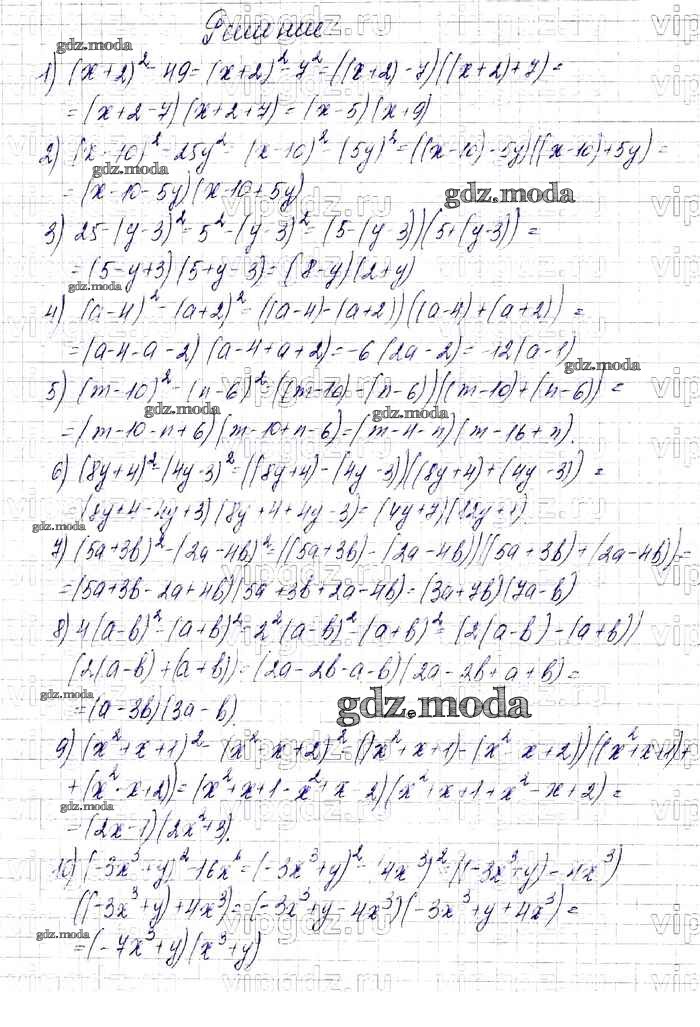 Решение:
1) (x+2)² - 49 = (x+2)² - 7² = ((x+2) - 7)((x+2) + 7) =
= (x+2-7)(x+2+7) = (x-5)(x+9)
2) (x-10)² - 25y² = (x-10)² - (5y)² = ((x-10) - 5y)((x-10) + 5y) =
= (x-10-5y)(x-10+5y)
3) 25 - (y-3)² = 5² - (y-3)² = (5 - (y-3))(5 + (y-3)) =
= (5-y+3)(5+y-3) = (8-y)(2+y)
4) (a-4)² - (a+2)² = ((a-4) - (a+2))((a-4) + (a+2)) =
= (a-4-a-2)(a-4+a+2) = -6(2a-2) = -12(a-1)
5) (m-10)² - (n-6)² = ((m-10) - (n-6))((m-10) + (n-6)) =
= (m-10-n+6)(m-10+n-6) = (m-4-n)(m-16+n).
6) (8y+4)² - (4y-3)² = ((8y+4) - (4y-3))((8y+4) + (4y-3)) =
= (8y+4-4y+3)(8y+4+4y-3) = (4y+7)(12y+1).
7) (5a+3b)² - (2a-4b)² = ((5a+3b) - (2a-4b))((5a+3b) + (2a-4b)) =
= (5a+3b-2a+4b)(5a+3b+2a-4b) = (3a+7b)(7a-b)
8) 4(a-b)² - (a+b)² = 2²(a-b)² - (a+b)² = (2(a-b) - (a+b))
(2(a-b) + (a+b)) = (2a-2b-a-b)(2a-2b+a+b) =
= (a-3b)(3a-b)
9) (x²+x+1)² - (x²-x+2)² = ((x²+x+1) - (x²-x+2))((x²+x+1) +
+ (x²-x+2)) = (x²+x+1-x²+x-2)(x²+x+1+x²-x+2) =
= (2x-1)(2x²+3).
10) (-3x³+y)² - 16x⁶ = (-3x³+y)² - (4x³)² = ((-3x³+y) - 4x³)
((-3x³+y) + 4x³) = (-3x³+y-4x³)(-3x³+y+4x³) =
= (-7x³+y)(x³+y)
gdz.moda
vipgdz.ru